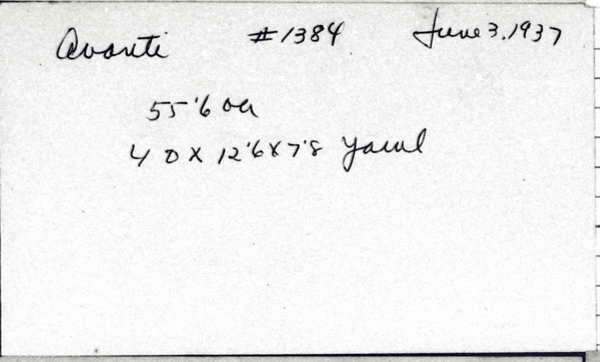 Avanti #1384 June 3, 1937
55'6 oa
40 x 12'6 x 7'8 Yawl